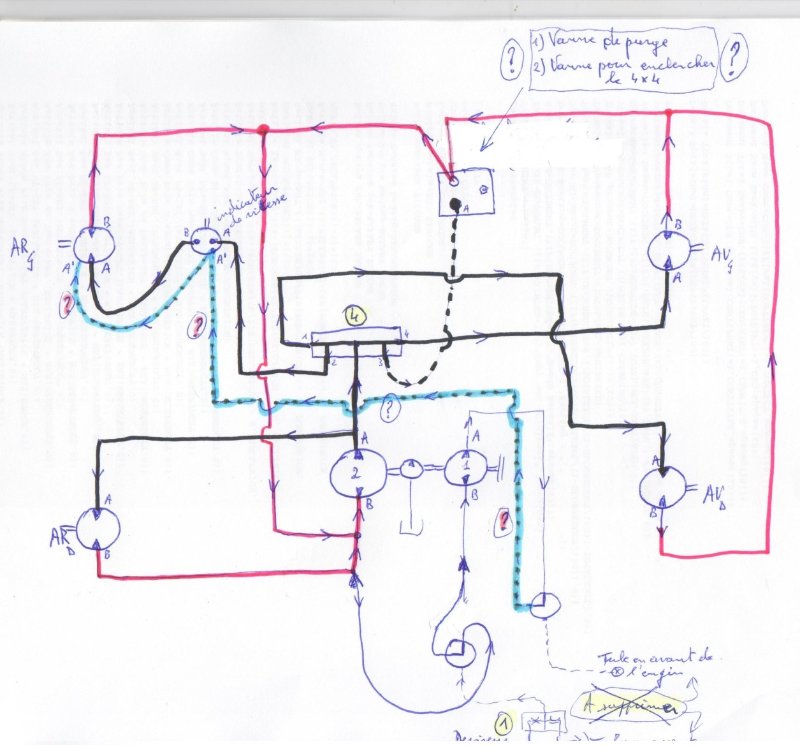 1) Vanne de purge
2) Vanne pour enclencher
le 4x4
?
?
indicateur
de vitesse
B
A
A'
B
A'
A
AR G
?
?
A
B
A
AV G
4
1
2
3
4
?
A
2
B
A
1
B
A
B
AR D
?
A
B
AV D
Fuite en avant de
l'engin
A supprimer
1